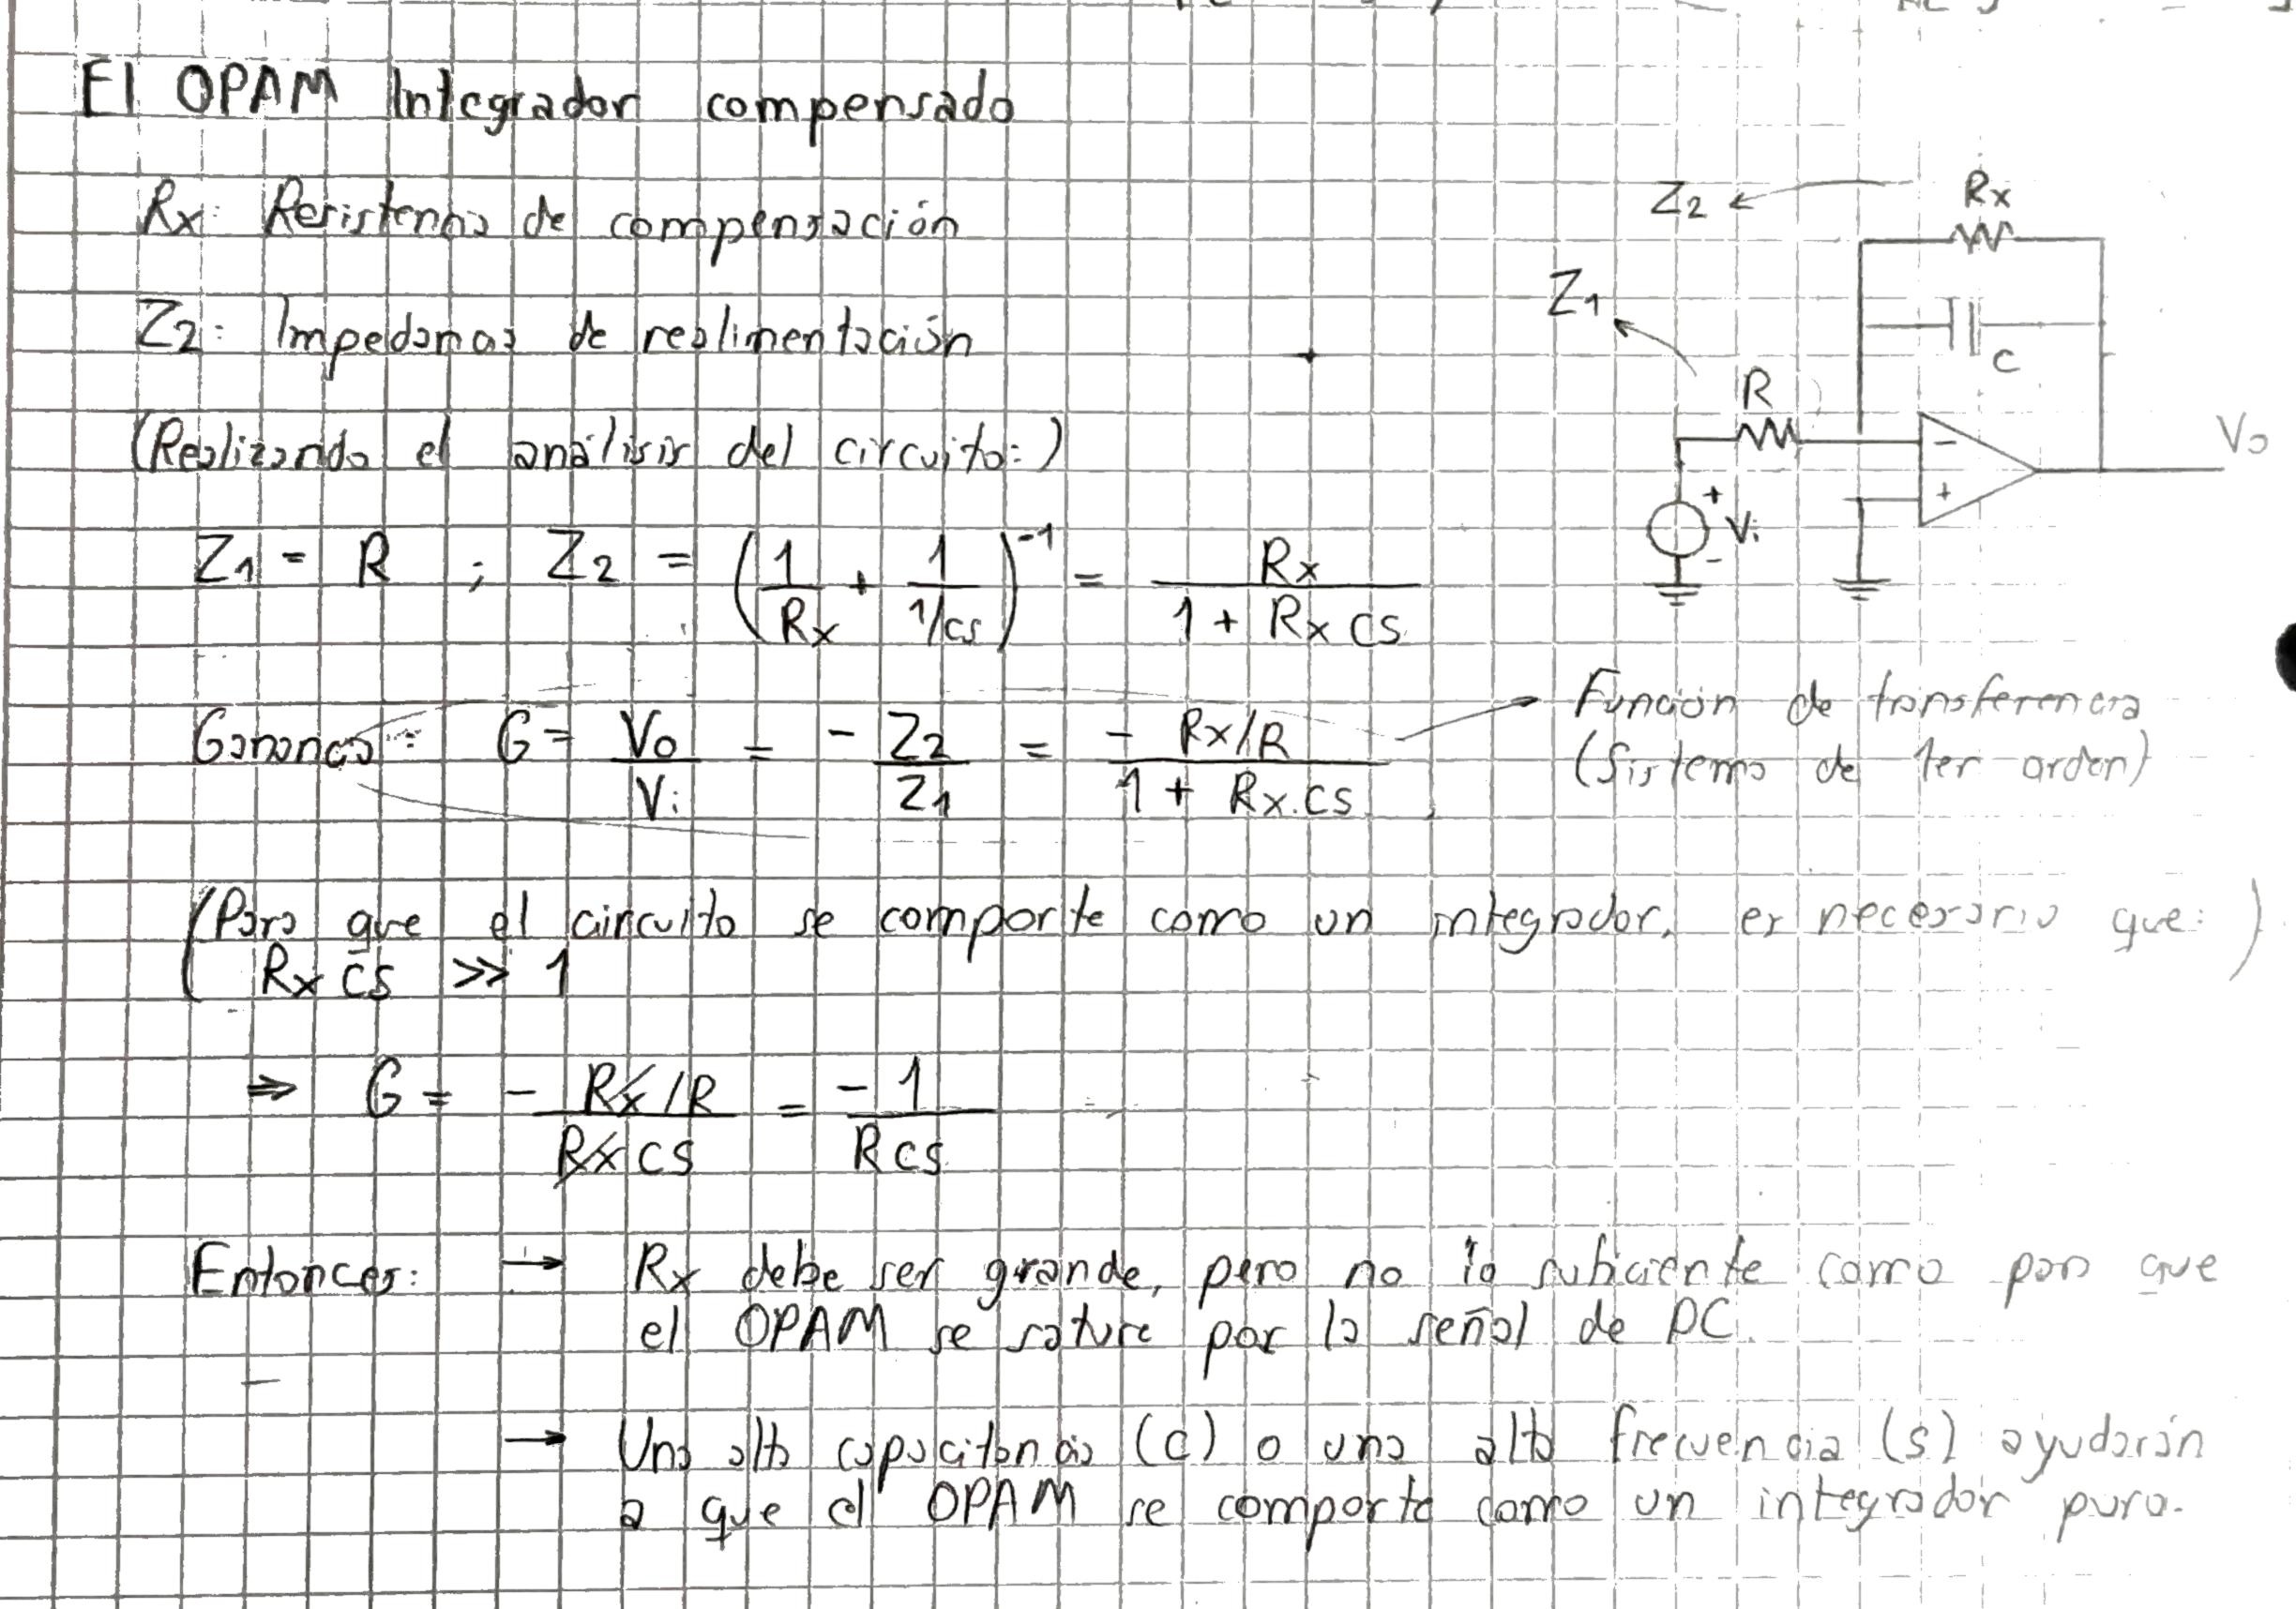 El OPAM Integrador compensado
Rx: Resistencia de compensación
Z2: Impedancia de realimentación
(Realizando el análisis del circuito:)
Z1 = R ; Z2 = (1/Rx + 1/(1/cs))^-1 = Rx / (1 + Rx cs)
Ganancia: G = Vo/Vi = - Z2/Z1 = - Rx/R / (1 + Rx.cs)
Función de transferencia
(Sistema de 1er orden)
(Para que el circuito se comporte como un integrador, es necesario que:)
Rx cs >> 1
⇒ G = - Rx/R / Rx cs = - 1 / Rcs
Entonces: → Rx debe ser grande, pero no lo suficiente como para que
el OPAM se sature por la señal de DC.
→ Una alta capacitancia (c) o una alta frecuencia (s) ayudarán
a que el OPAM se comporte como un integrador puro.
Z2 ← Rx
Z1
C
R
-
+
Vo
+
Vi
-